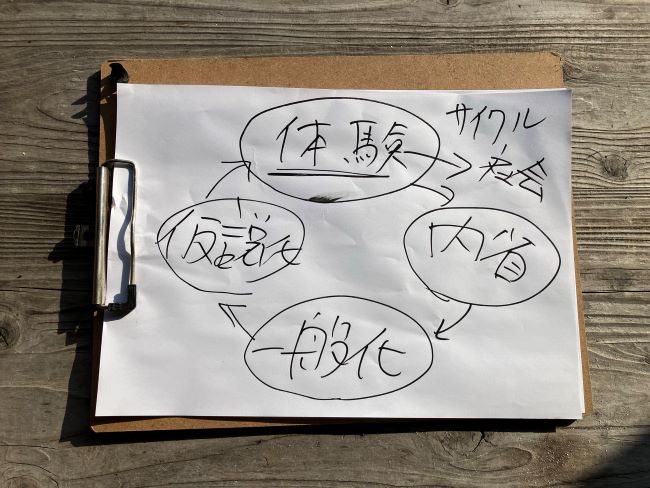 体験
サイクル
内省
一般化
仮説化